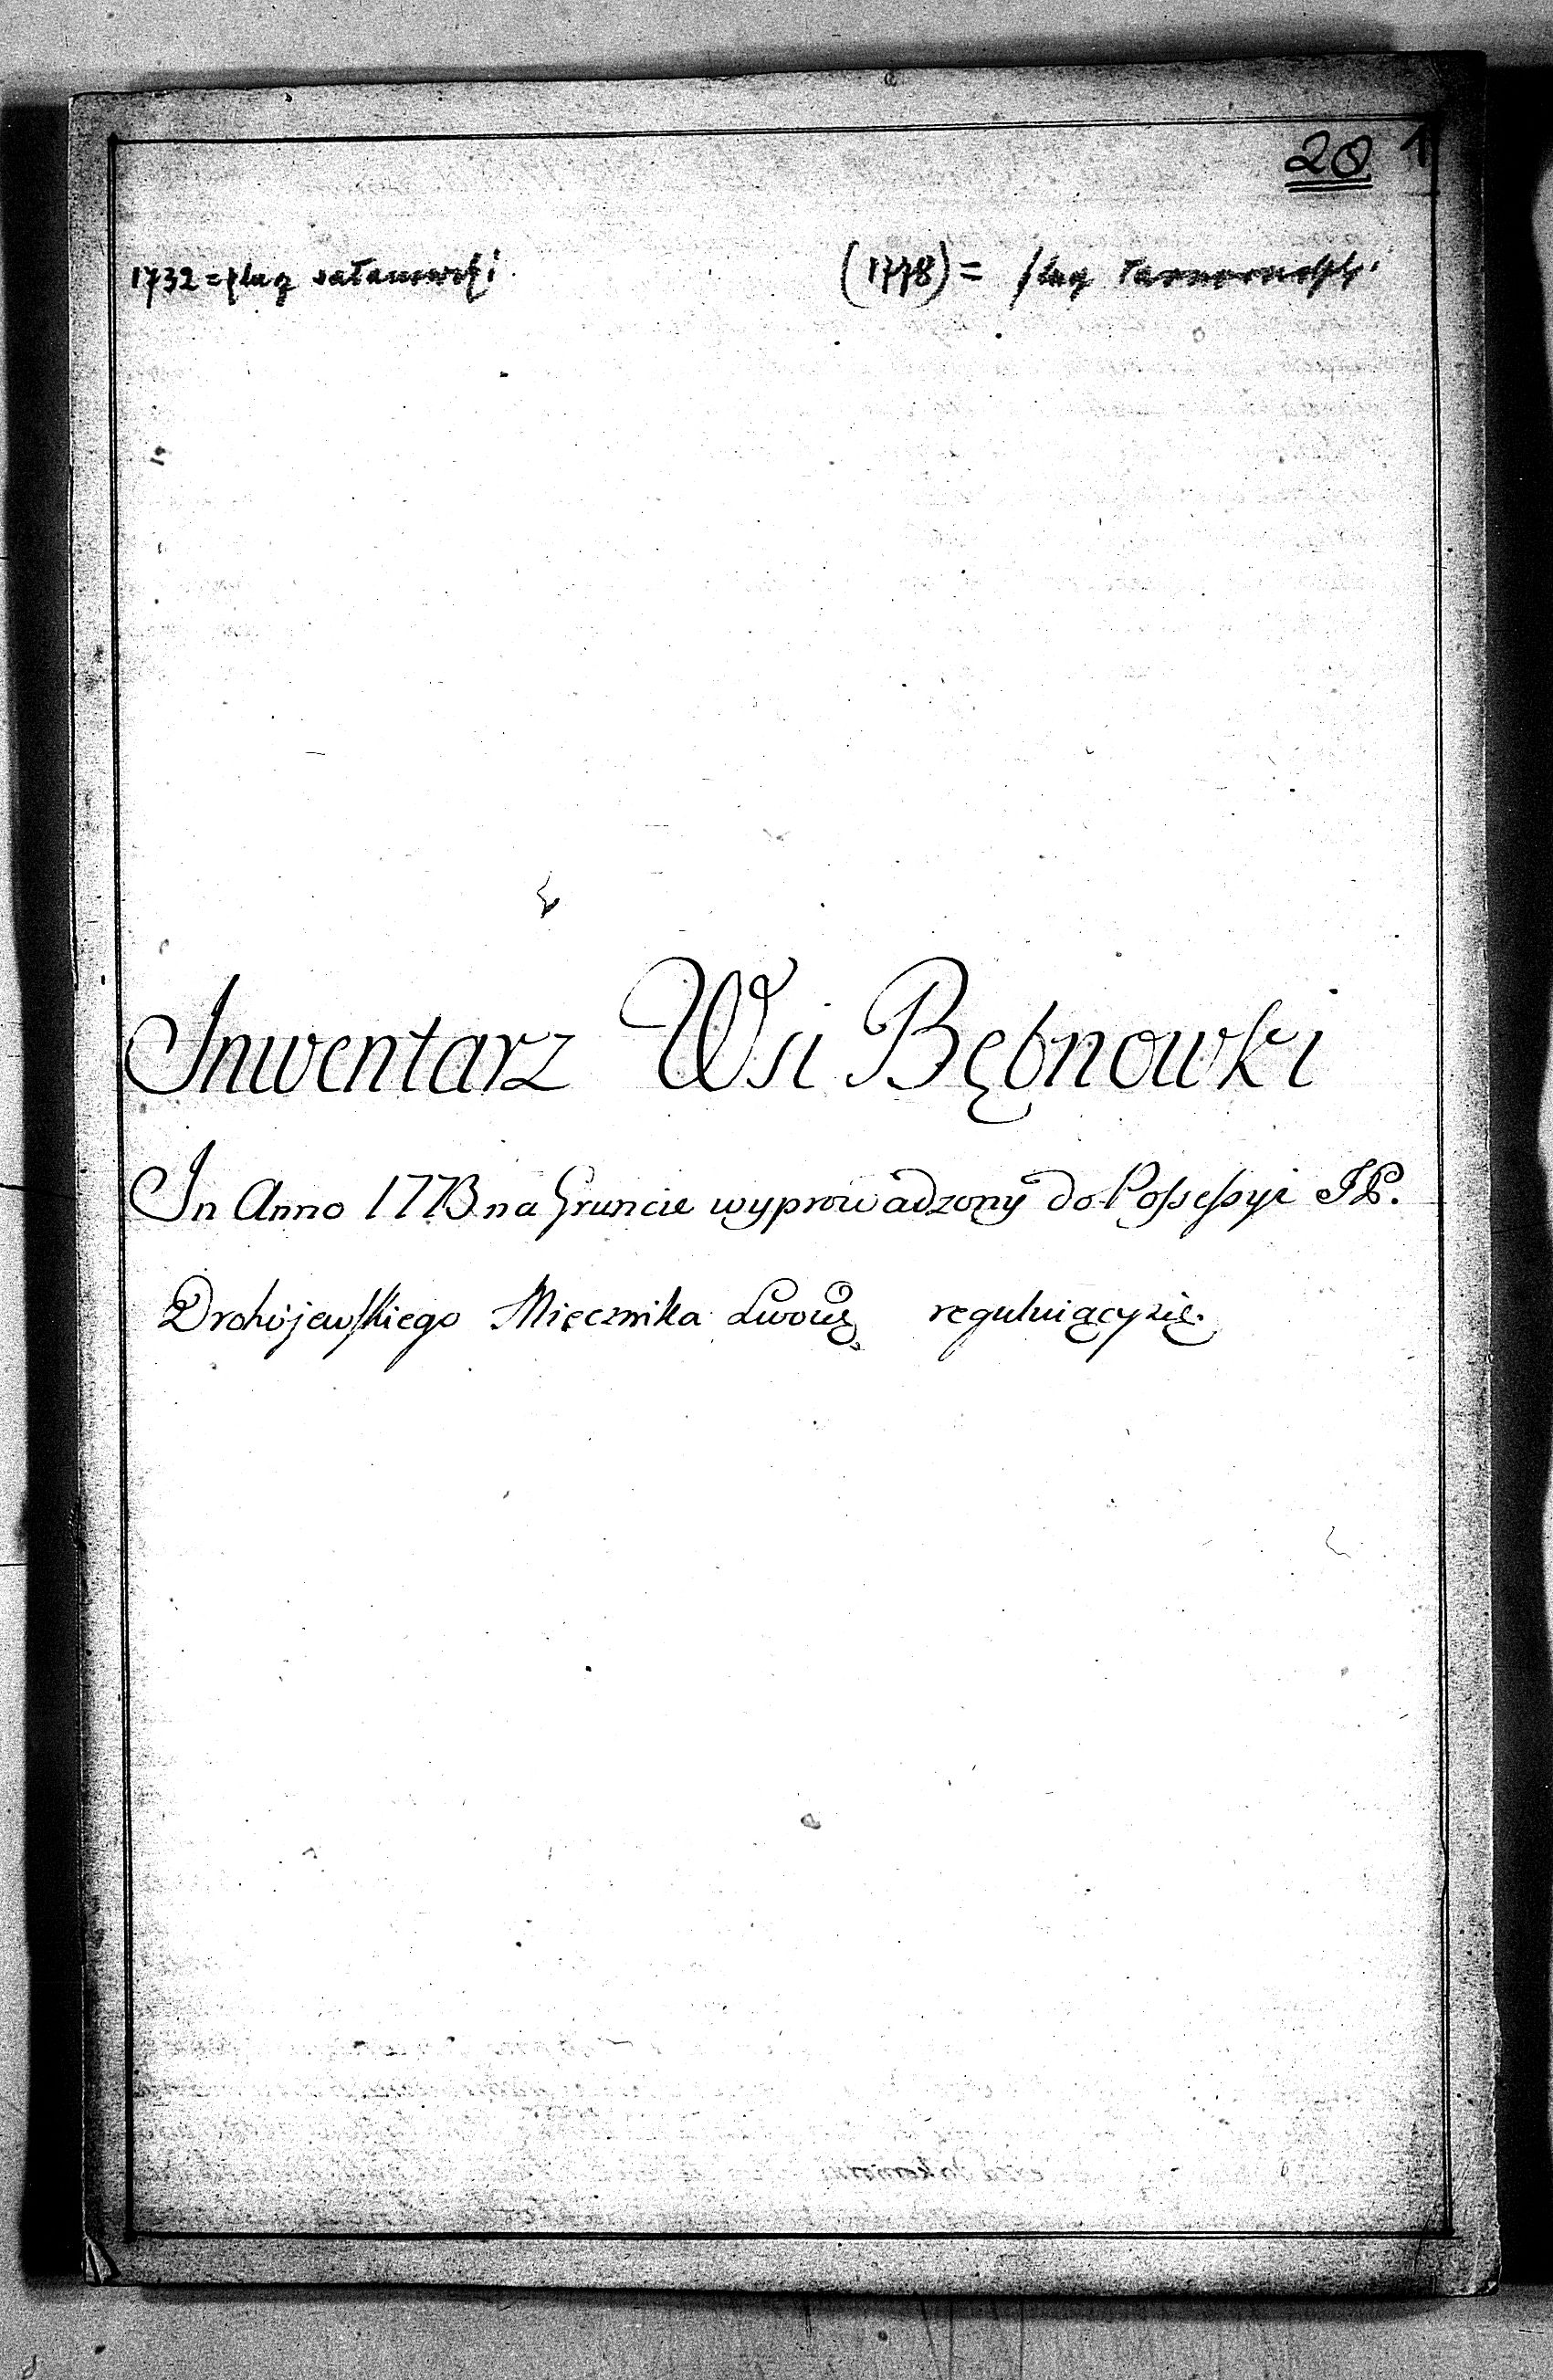 20 1
1732 = flag satanowski (1778) = flag
Inwentarz Wsi Bębnowki
In Anno 1773 na Gruncie wyprowadzony do Possessyi JP.
Drohojewskiego Miecznika Lwows reguluiący się.